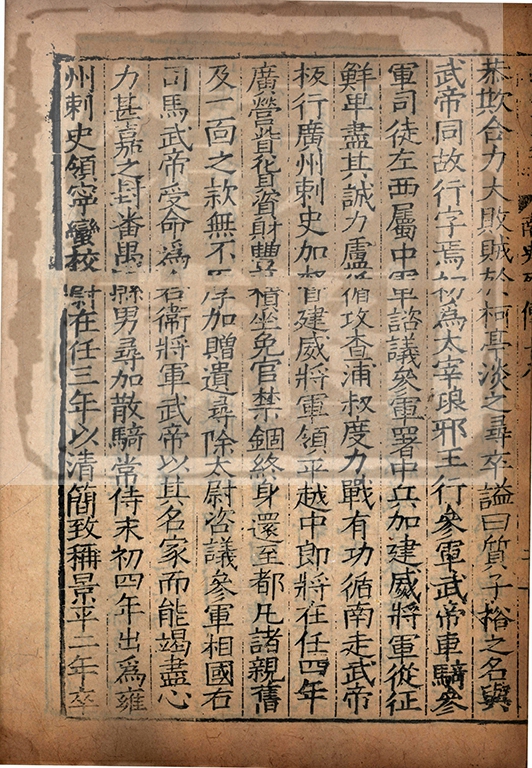 恭欽合力大敗賊於柯亭淡之尋卒謚曰質子裕之名與
武帝同故行字焉初為太宰琅邪王行參軍武帝車騎參
軍司徒左西屬中軍諮議參軍署中兵加建威將軍從征
鮮卑盡其誠力盧循攻查浦叔度力戰有功循南走武帝
板行廣州刺史加督建威將軍領平越中郎將在任四年
廣營貲貨資財豐積坐免官禁錮終身還至都凡諸親舊
及一面之款無不厚加贈遺尋除太尉咨議參軍相國右
司馬武帝受命為右衛將軍武帝以其名家而能竭盡心
力甚嘉之封番禺縣男尋加散騎常侍末初四年出為雍
州刺史領寧蠻校尉在任三年以清簡致稱景平二年卒